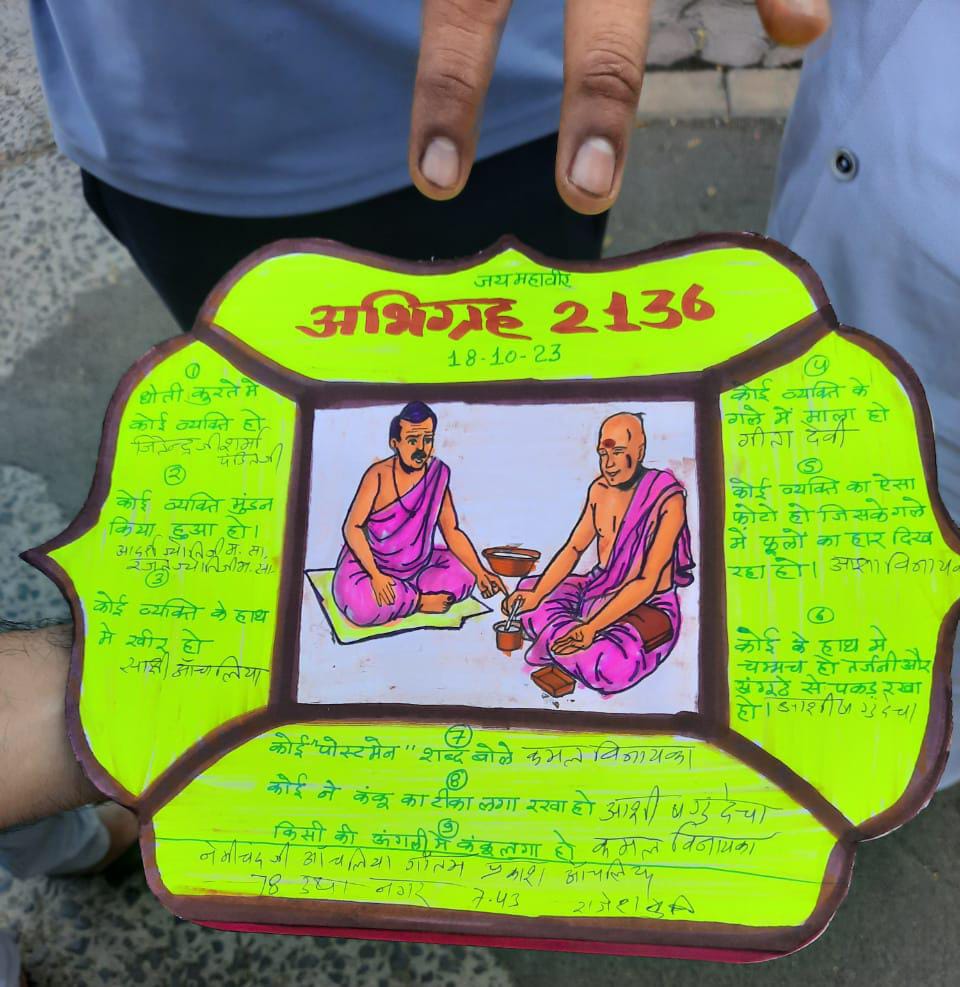 जय महावीर
अभिग्रह 2136
18-10-23
1
धोती कुरते मे
कोई व्यक्ति हो
जितेन्द्र जी शर्मा
पंडितजी
2
कोई व्यक्ति मुंडन
किया हुआ हो।
आदर्श ज्योतिजी म. सा.
रजत ज्योतिजी म. सा.
3
कोई व्यक्ति के हाथ
मे खीर हो
साक्षी आँचलिया
4
कोई व्यक्ति के
गले में माला हो
गीता देवी
5
कोई व्यक्ति का ऐसा
फोटो हो जिसके गले
में फूलो का हार दिख
रहा हो। आशा विनायक
6
कोई के हाथ मे
चम्मच हो तर्जनी और
अंगूठे से पकड़ रखा
हो। आशीष गुंदेचा
7
कोई "पोस्टमेन" शब्द बोले कमल विनायका
8
कोई ने कंकू का टीका लगा रखा हो आशीष गुंदेचा
9
किसी की ऊंगली मे कंकू लगा हो कमल विनायका
नेमीचंद जी आँचलिया गौतम प्रकाश आँचलिया
78 उषा नगर 7.43 राजेश